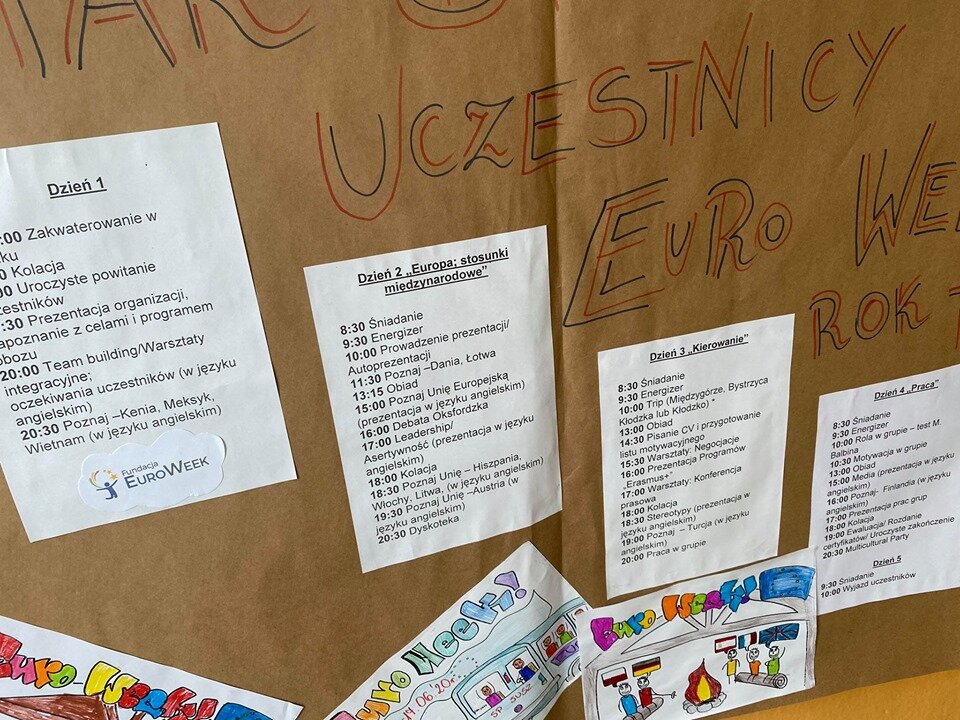 UCZESTNICY
EURO WE
ROK
Dzień 1
:00 Zakwaterowanie w
ku
0 Kolacja
00 Uroczyste powitanie
zestników
:30 Prezentacja organizacji,
apoznanie z celami i programem
obozu
20:00 Team building/Warsztaty
integracyjne;
oczekiwania uczestników (w języku
angielskim)
20:30 Poznaj –Kenia, Meksyk,
Wietnam (w języku angielskim)
Fundacja
EUROWEEK
Dzień 2 „Europa; stosunki
międzynarodowe”
8:30 Śniadanie
9:30 Energizer
10:00 Prowadzenie prezentacji/
Autoprezentacji
11:30 Poznaj –Dania, Łotwa
13:15 Obiad
15:00 Poznaj Unię Europejską
(prezentacja w języku angielskim)
16:00 Debata Oksfordzka
17:00 Leadership/
Asertywność (prezentacja w języku
angielskim)
18:00 Kolacja
18:30 Poznaj Unię – Hiszpania,
Włochy, Litwa, (w języku angielskim)
19:30 Poznaj Unię –Austria (w
języku angielskim)
20:30 Dyskoteka
Dzień 3 „Kierowanie”
8:30 Śniadanie
9:30 Energizer
10:00 Trip (Międzygórze, Bystrzyca
Kłodzka lub Kłodzko) *
13:00 Obiad
14:30 Pisanie CV i przygotowanie
listu motywacyjnego
15:30 Warsztaty: Negocjacje
16:00 Prezentacja Programów
„Erasmus+”
17:00 Warsztaty: Konferencja
prasowa
18:00 Kolacja
18:30 Stereotypy (prezentacja w
języku angielskim)
19:00 Poznaj – Turcja (w języku
angielskim)
20:00 Praca w grupie
Dzień 4 „Praca”
8:30 Śniadanie
9:30 Energizer
10:00 Rola w grupie – test M.
Balbina
10:30 Motywacja w grupie
13:00 Obiad
15:00 Media (prezentacja w języku
angielskim)
16:00 Poznaj- Finlandia (w języku
angielskim)
17:00 Prezentacja prac grup
18:00 Kolacja
19:00 Ewaluacja/ Rozdanie
certyfikatów/ Uroczyste zakończenie
20:30 Multicultural Party
Dzień 5
9:30 Śniadanie
10:00 Wyjazd uczestników
Euro-Week
Euro Week!
SP
Euro-Week!